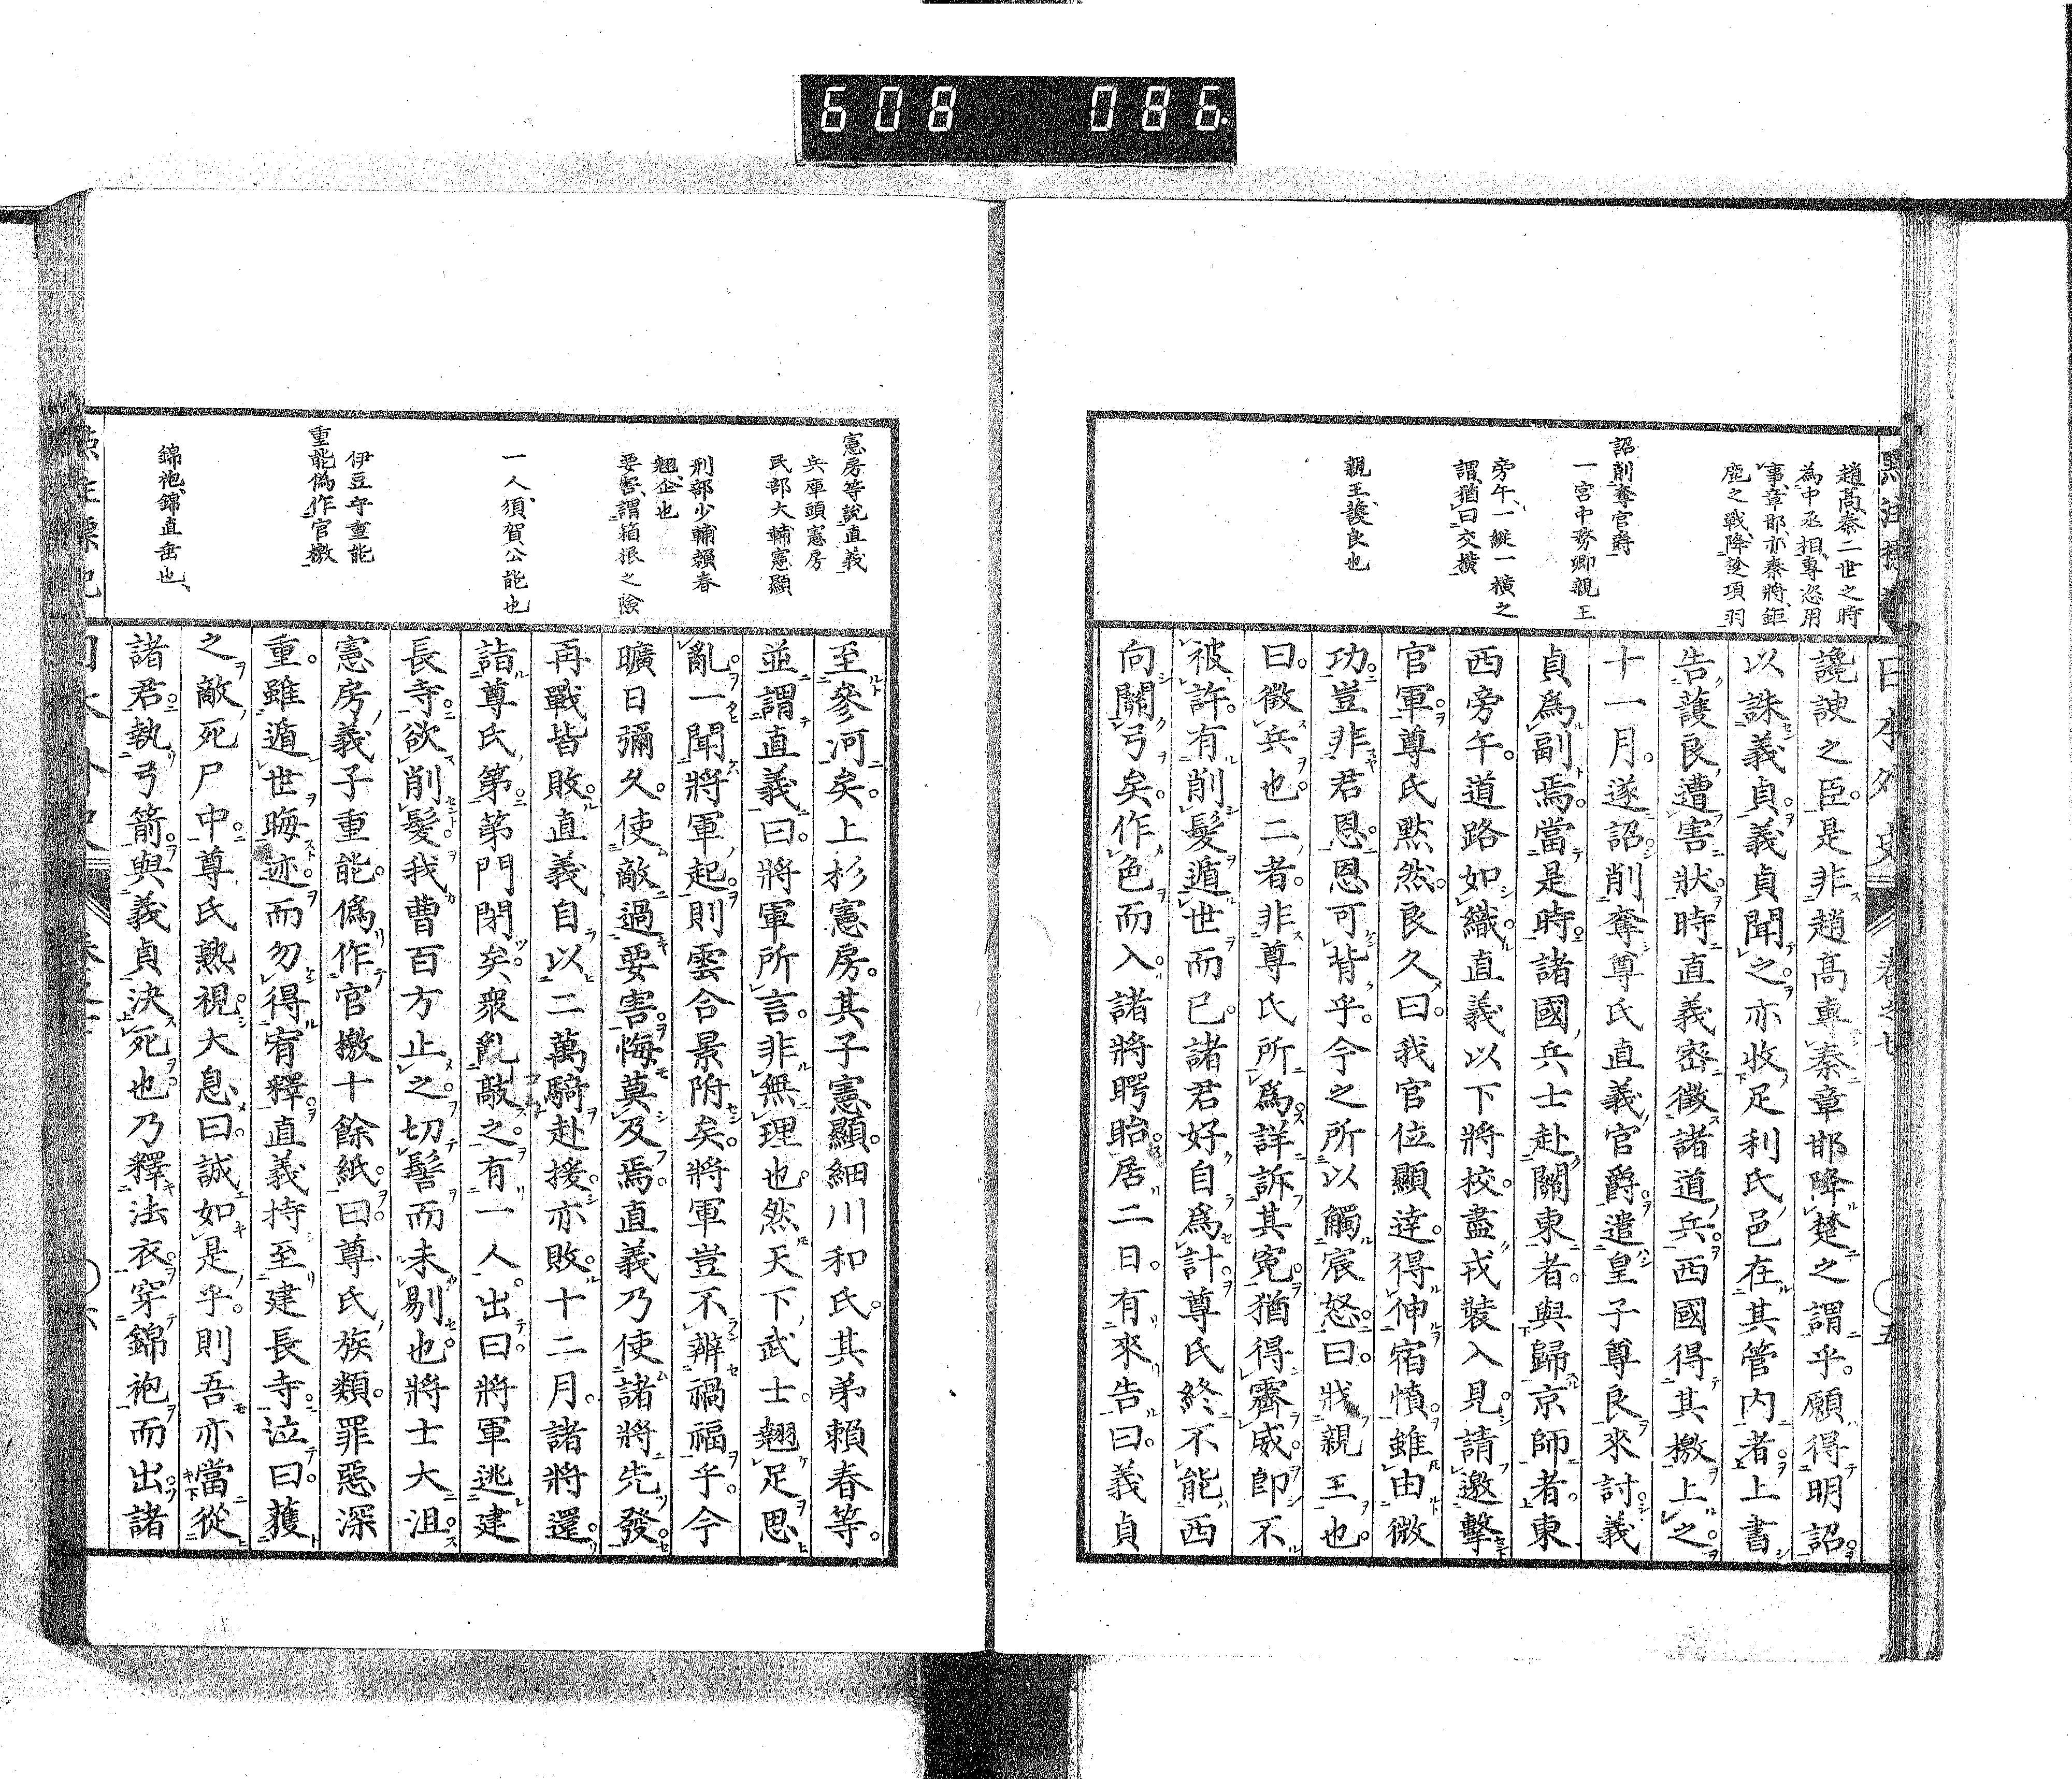 608 086
日本外史
卷之七
五
趙高秦二世之時
為中丞相專恣用
事章邯亦秦將鉅
鹿之戰降楚項羽
詔削奪官爵
一宮中務卿親王
旁午一縱一橫之
謂猶曰交橫
親王護良也
讒諛之臣是非趙高專秦章邯降楚之謂乎願得明詔
以誅義貞義貞聞之亦收足利氏邑在其管内者上書
告護良遭害狀時直義密徵諸道兵西國得其檄上之
十一月遂詔削奪尊氏直義官爵遣皇子尊良來討義
貞爲副焉當是時諸國兵士赴關東者與歸京師者東
西旁午道路如織直義以下將校盡戎裝入見請邀擊
官軍尊氏默然良久曰我官位顯達得伸宿憤雖由微
功豈非君恩恩可背乎今之所以觸宸怒曰戕親王也
曰徵兵也二者非尊氏所爲詳訴其寃猶得霽威卽不
被許有削髮遁世而已諸君好自爲計尊氏終不能西
向關弓矣作色而入諸將愕眙居二日有來告曰義貞
憲房等說直義
兵庫頭憲房
民部大輔憲顯
刑部少輔賴春
翹企也
要害謂箱根之險
一人須賀公能也
伊豆守重能
重能偽作官檄
錦袍錦直垂也
至參河矣上杉憲房其子憲顯細川和氏其弟賴春等
並謂直義曰將軍所言非無理也然天下武士翹足思
亂一聞將軍起則雲合景附矣將軍豈不辨禍福乎今
曠日彌久使敵過要害悔莫及焉直義乃使諸將先發
再戰皆敗直義自以二萬騎赴援亦敗十二月諸將還
詣尊氏第第門閉矣衆亂敲之有一人出曰將軍逃建
長寺欲削髮我曹百方止之切髻而未剔也將士大沮
憲房義子重能偽作官檄十餘紙曰尊氏族類罪惡深
重雖遁世晦迹而勿得宥釋直義持至建長寺泣曰獲
之敵死尸中尊氏熟視大息曰誠如是乎則吾亦當從
諸君執弓箭與義貞決死也乃釋法衣穿錦袍而出諸